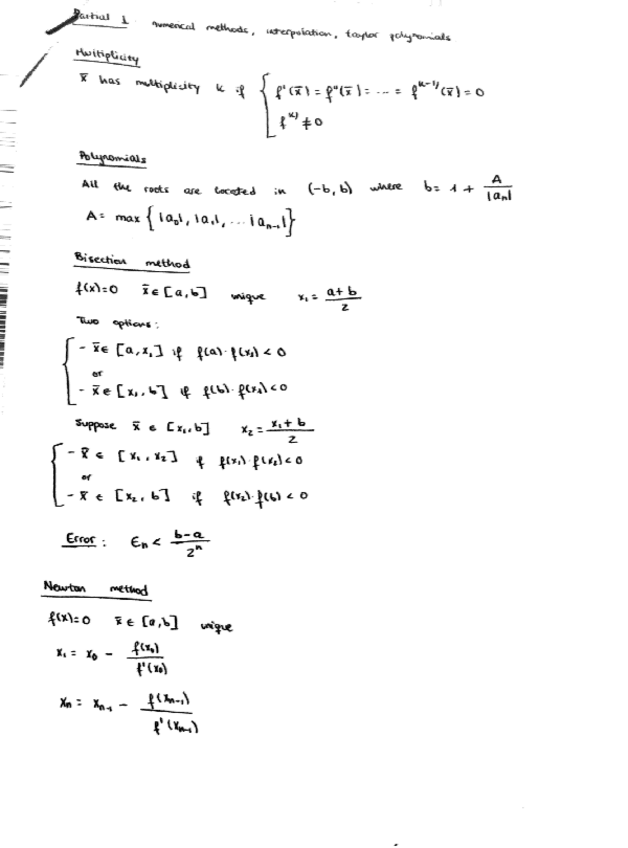 Partial 1 numerical methods, interpolation, taylor polynomials
Multiplicity
x̄ has multiplicity k if { f'(x̄) = f''(x̄) = ... = f^(k-1)(x̄) = 0
f^(k) ≠ 0
Polynomials
All the roots are located in (-b, b) where b = 1 + A/|aₙ|
A = max { |a₀|, |a₁|, ... |aₙ₋₁| }
Bisection method
f(x)=0 x̄ ∈ [a, b] unique x₁ = (a+b)/2
Two options:
- x̄ ∈ [a, x₁] if f(a)·f(x₁) < 0
or
- x̄ ∈ [x₁, b] if f(b)·f(x₁) < 0
Suppose x̄ ∈ [x₁, b] x₂ = (x₁+b)/2
- x̄ ∈ [x₁, x₂] if f(x₁)·f(x₂) < 0
or
- x̄ ∈ [x₂, b] if f(x₂)·f(b) < 0
Error: Eₙ < (b-a)/2ⁿ
Newton method
f(x)=0 x̄ ∈ [a, b] unique
x₁ = x₀ - f(x₀)/f'(x₀)
xₙ = xₙ₋₁ - f(xₙ₋₁)/f'(xₙ₋₁)